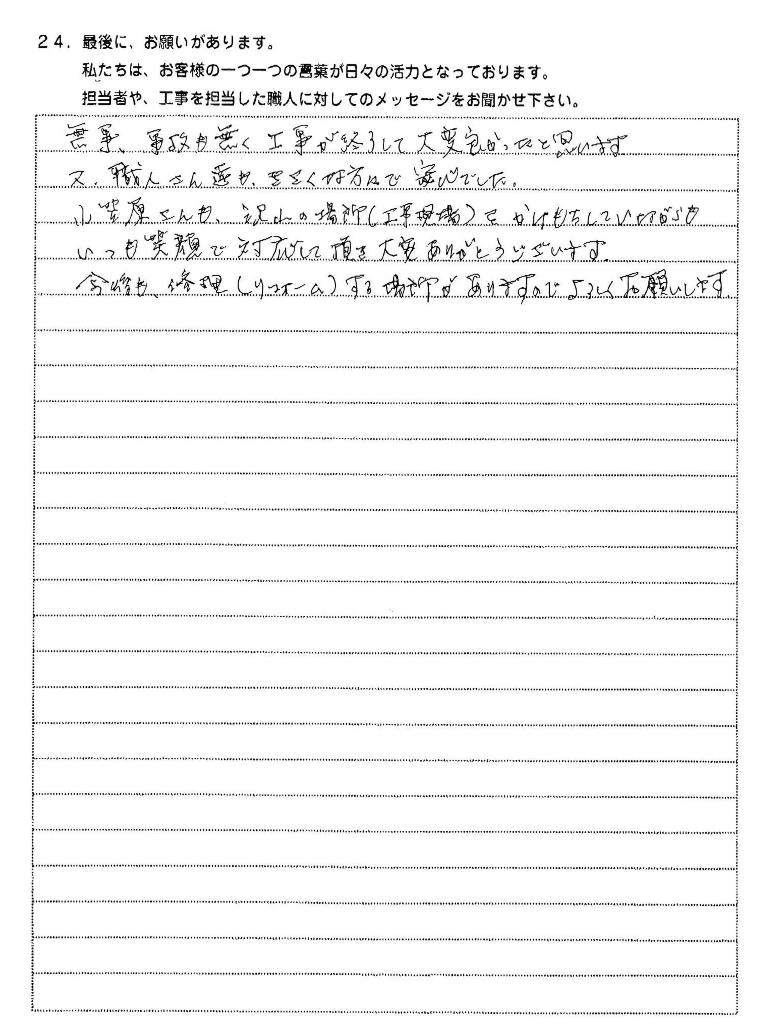 24. 最後に、お願いがあります。
私たちは、お客様の一つ一つの言葉が日々の活力となっております。
担当者や、工事を担当した職人に対してのメッセージをお聞かせ下さい。
無事、事故も無く工事が終了して大変良かったと思います
又、職人さん達も、気さくな方々で 喜びでした。
小笠原さんも、沢山の場所(工事現場)をかけもちしていながらも
いつも笑顔で対応して頂き大変ありがとうございます。
今後も、修理(リフォーム)する場所がありますのでよろしくお願いします。